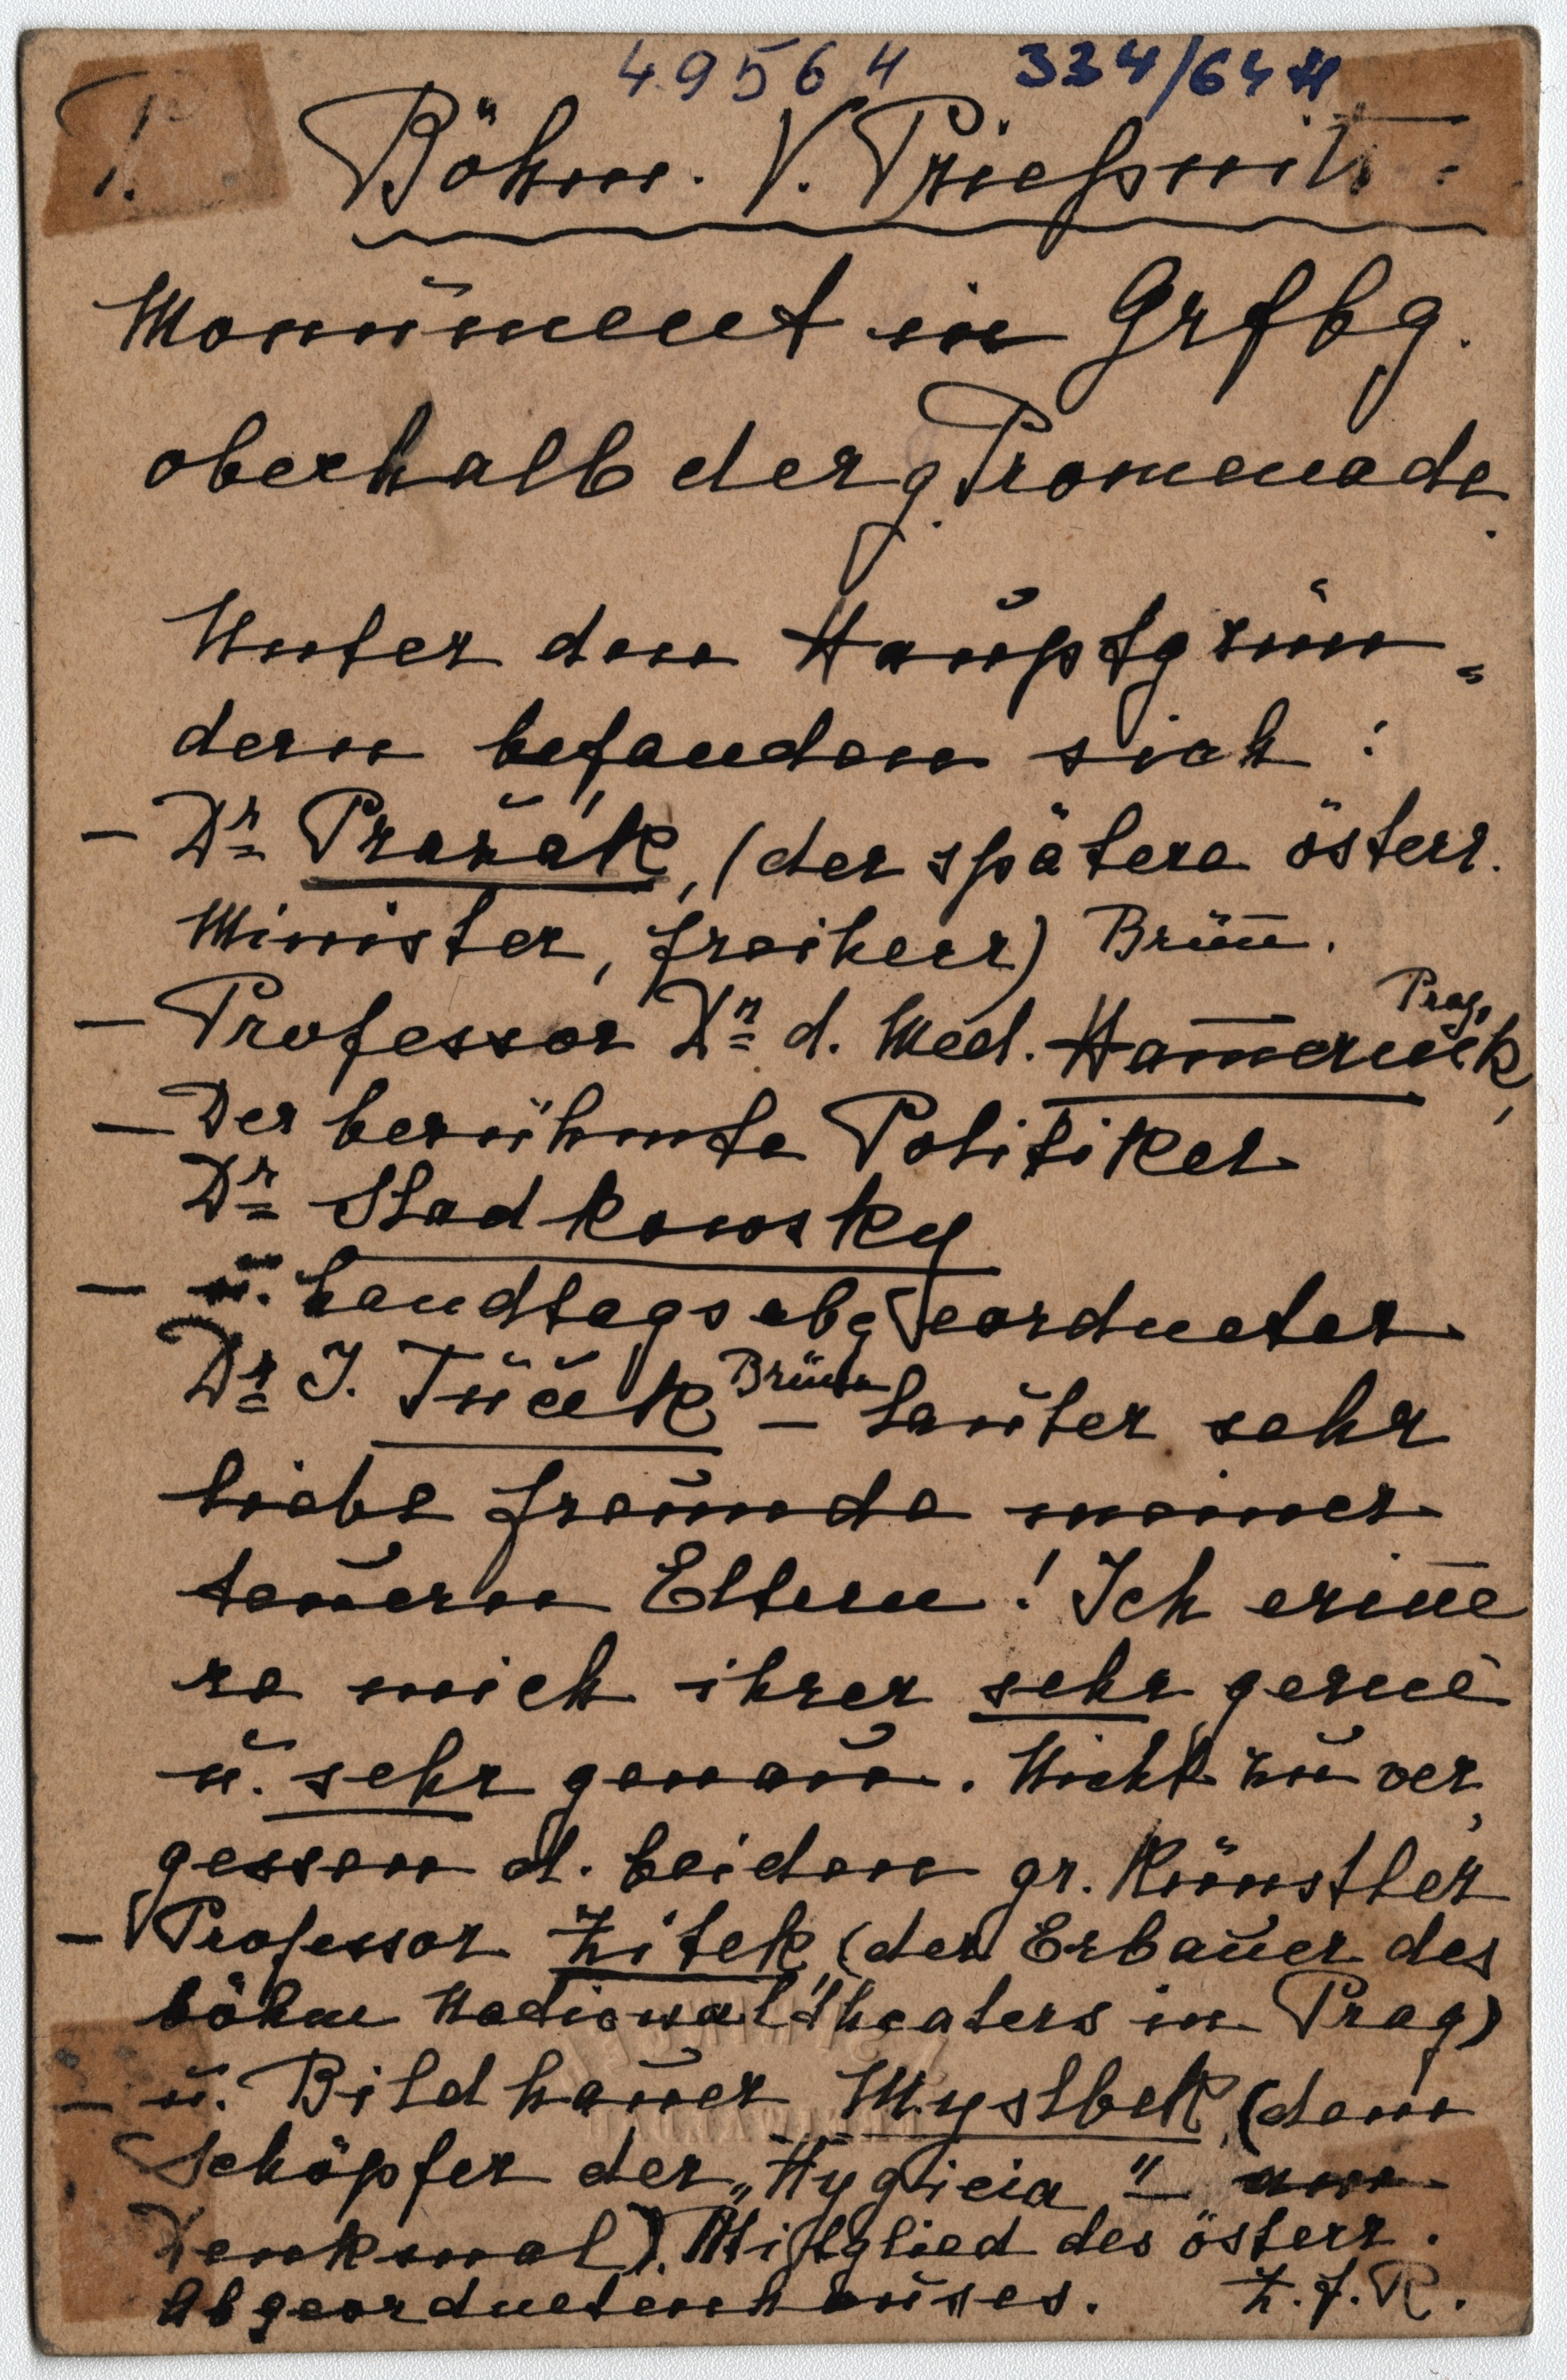 49564 334/64 H
P. Böhm. V. Prießnitz=
Monŭment in Grfbg.
oberhalb der g. Promenade.
Unter den Haŭptgrün=
dern befanden sich:
– Dr Pražák, (der spätere österr.
Minister, Freiherr) Brün̄.
Prag,
– Professor Dr d. Med. Ham̄ernik,
– Der berühmte Politiker
Dr Sladkowsky
– ŭ. Landtagsabgeordneter
Dr J. Tŭček Brünn – Laŭter sehr
liebe Freŭnde meiner
teŭern Eltern! Ich erin̄e
re mich ihrer sehr gerne
ŭ. sehr genaŭ. Nicht zŭ ver,
gessen d. beiden gr. Künstler
– Professor Zitek, (den Erbaŭer des
böhm National Theaters in Prag)
– ŭ. Bildhaŭer Myslbek, (dem
Schöpfer der „Hygieia" – am
Denkmal). Mitglied des österr.
Abgeordnetenhaŭses. Z. F. R.